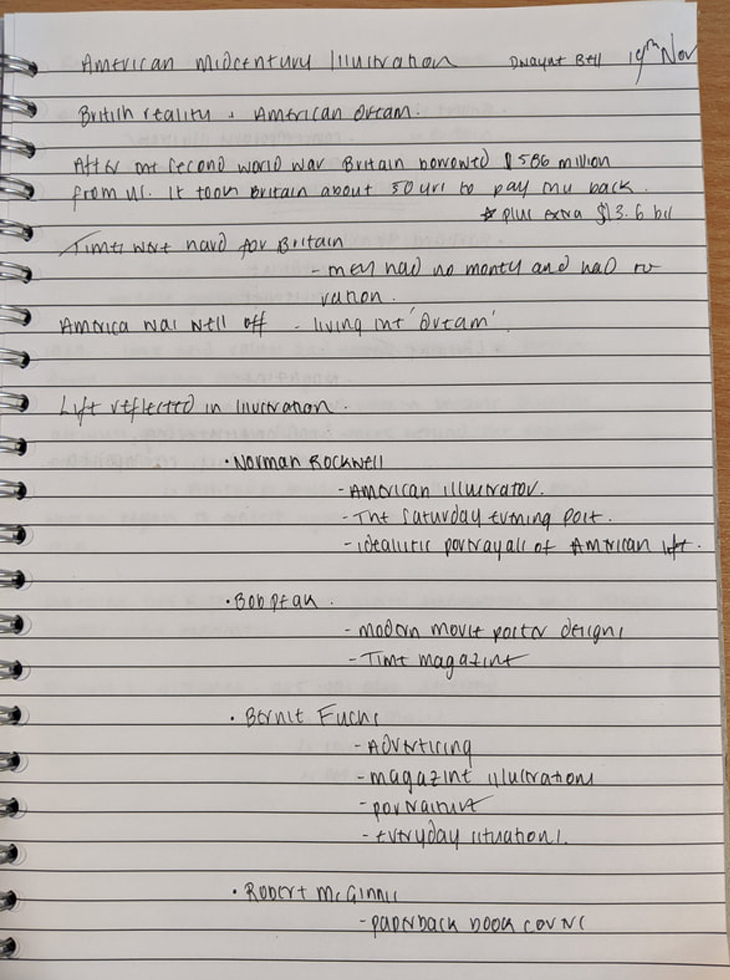 American midcentury Illustration Dwayne Bell 19th Nov
British reality + American Dream.
After the second world war Britain borrowed $586 million
from US. It took Britain about 50 yrs to pay this back.
* plus extra $13.6 bil
Times were hard for Britain
- men had no money and had to
ration.
America was well off - living the 'Dream'.
Life reflected in Illustration.
• Norman Rockwell
- American illustrator.
- The Saturday evening Post.
- idealistic portrayals of American life.
• Bob Peak.
- modern movie poster designs
- Time magazine
• Bernie Fuchs
- Advertising
- magazine illustrations
- portraiture
- everyday situations.
• Robert McGinnis
- paperback book covers